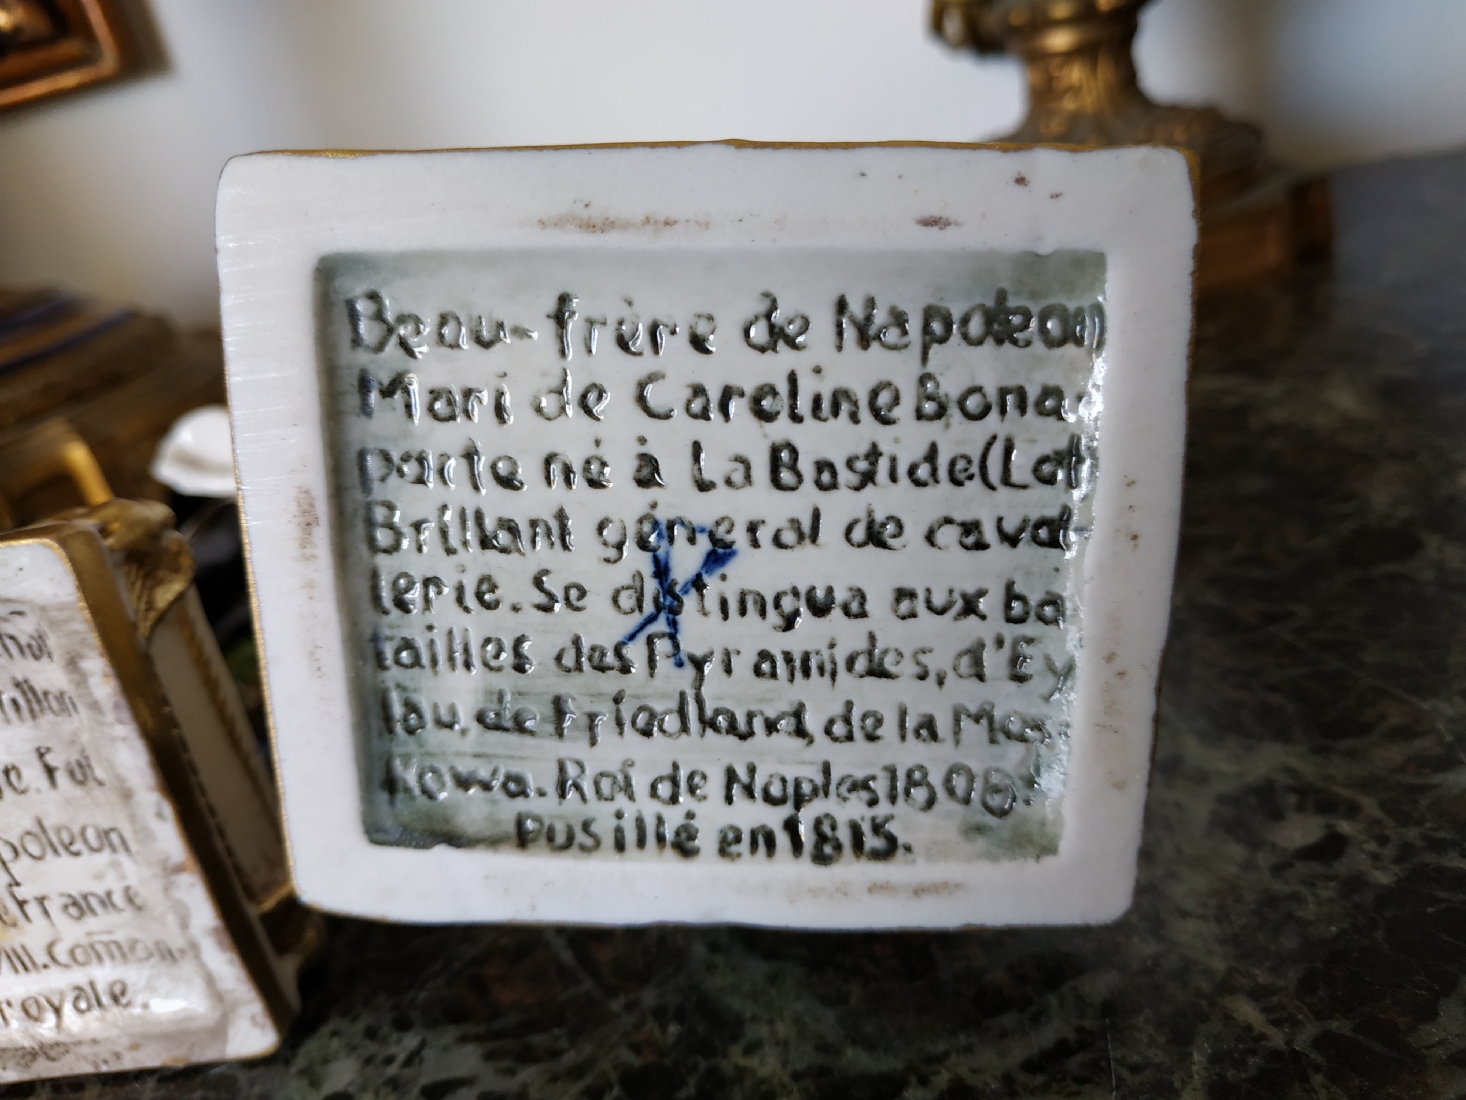 Beau-frère de Napoleon
Mari de Caroline Bona-
parte né à La Bastide (Lot)
Brillant géneral de caval-
lerie. Se distingua aux ba
tailles des Pyramides, d'Ey
lau, de Friedland, de la Mos-
Kowa. Roi de Naples 1808.
Pusillé en 1815.
Fut
poleon
France
VIII. Comān-
royale.